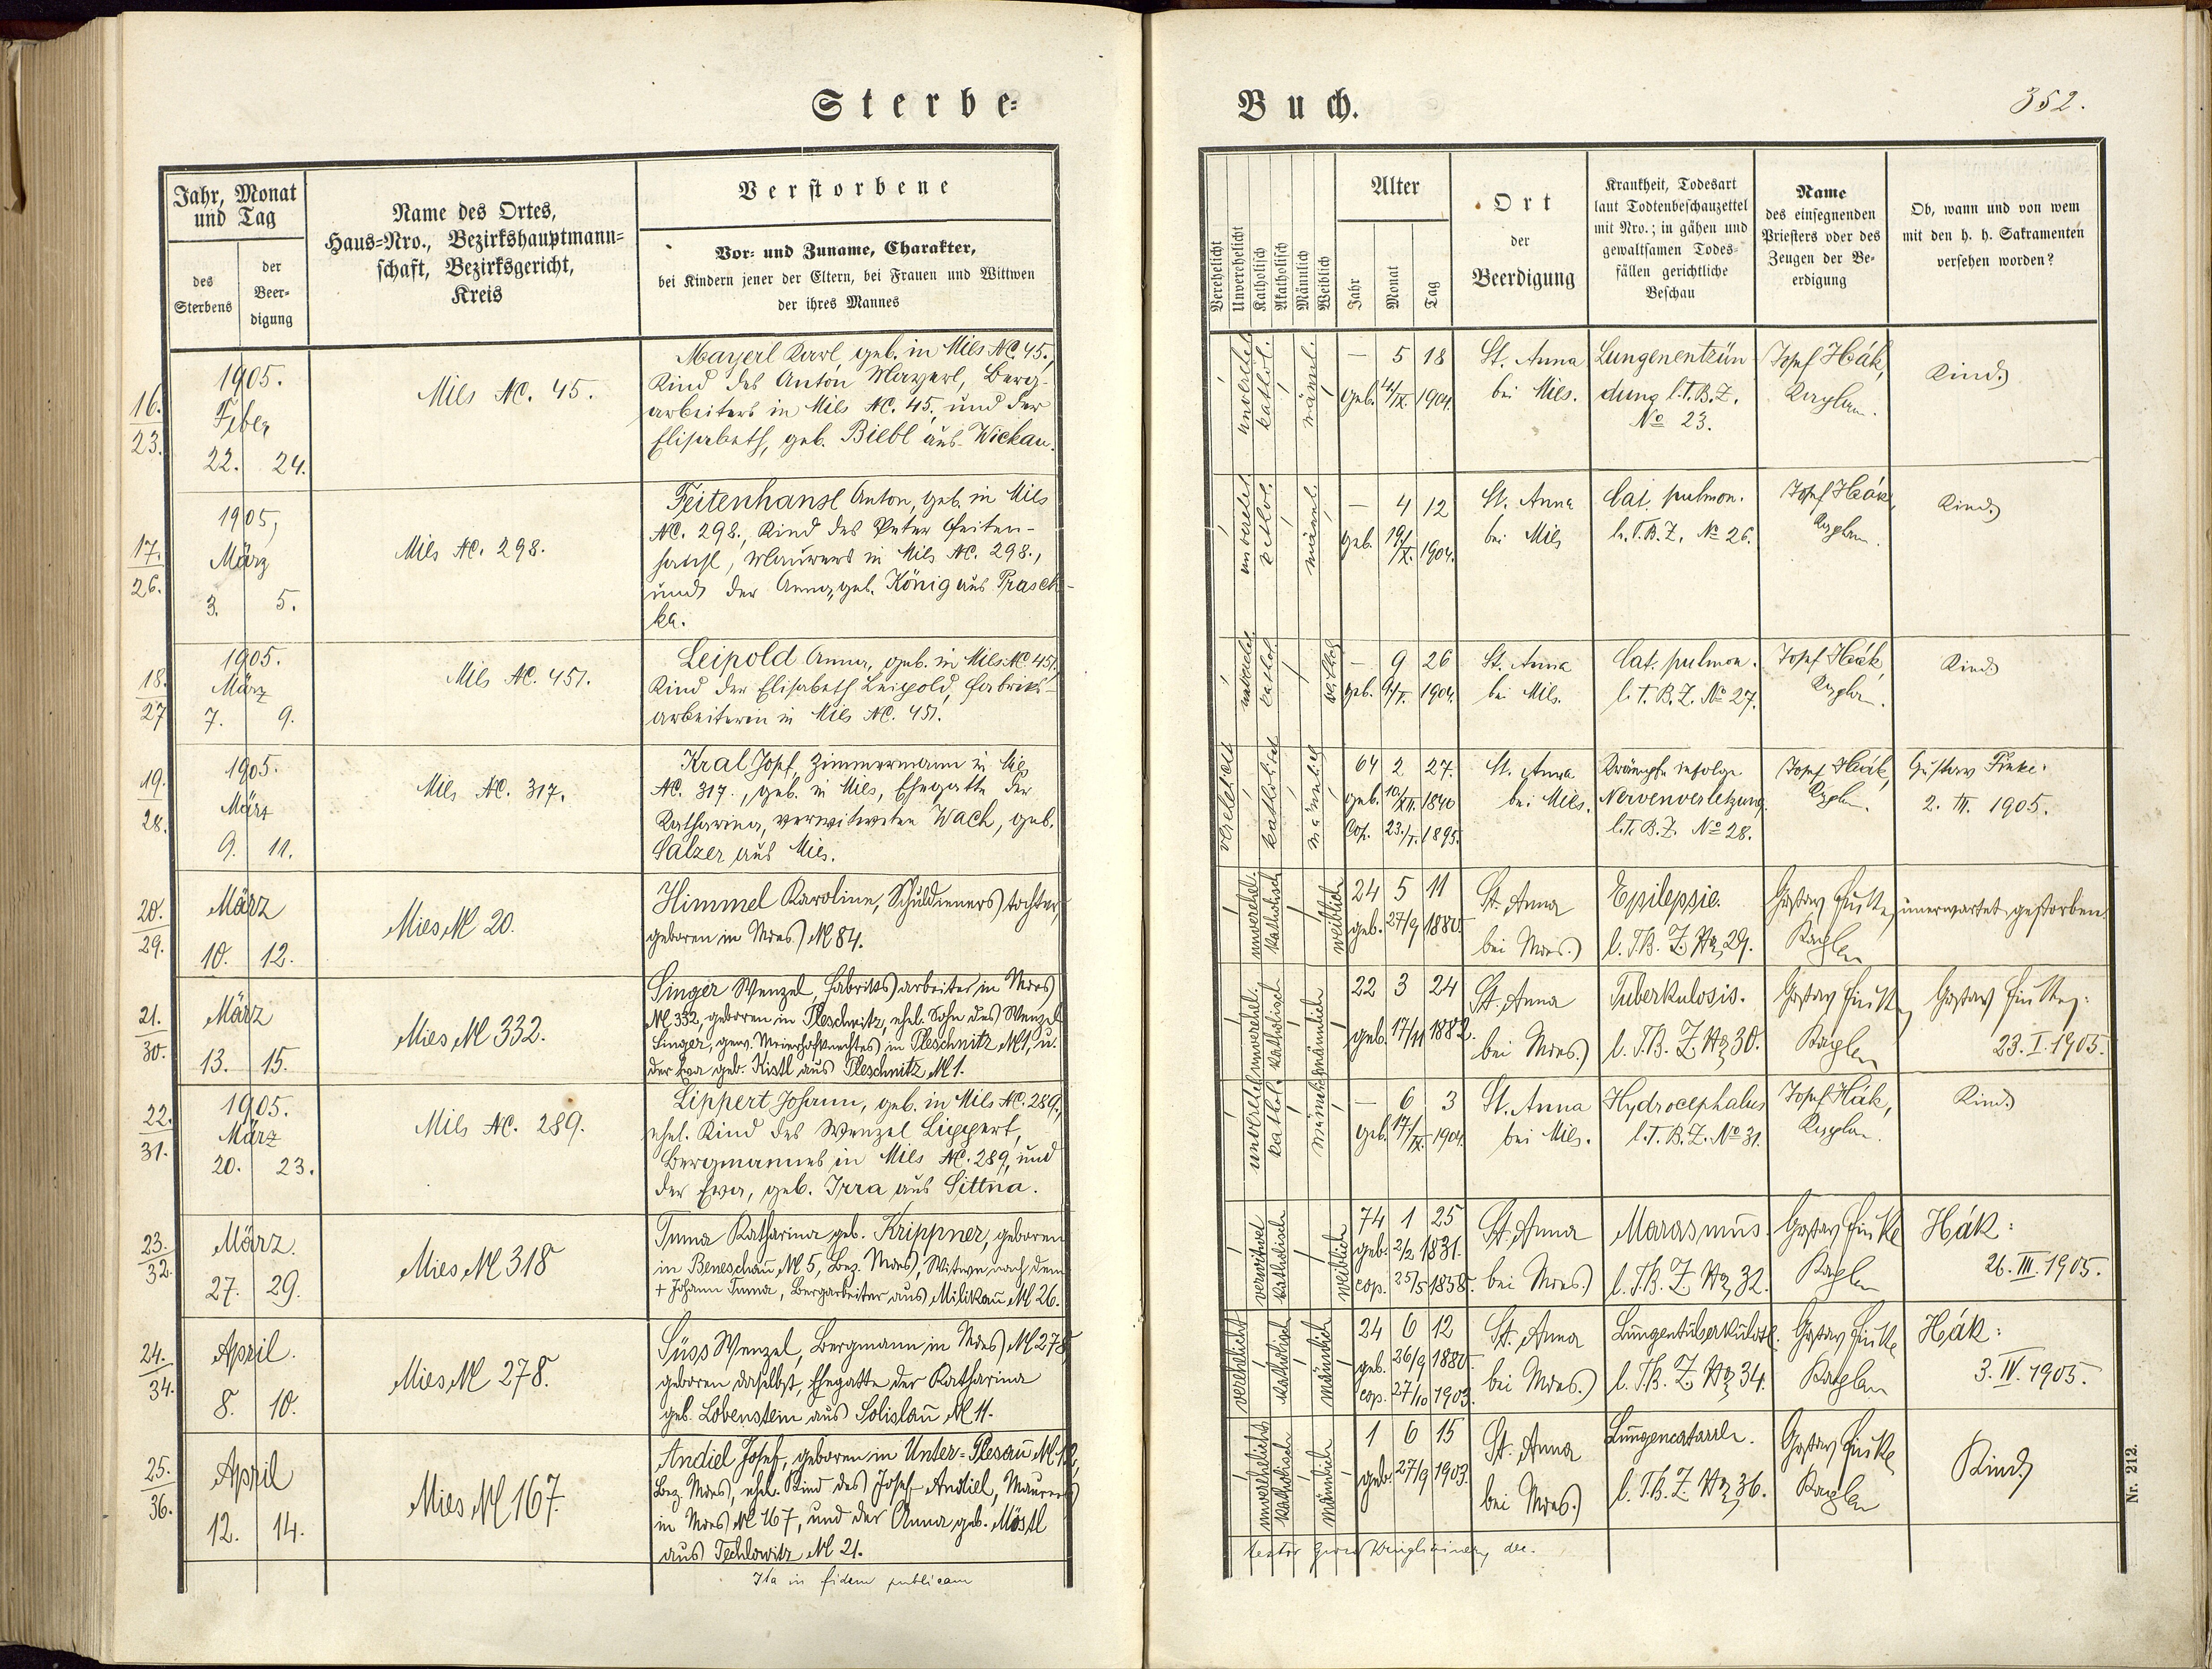 Sterbe-
Buch.
352.
Jahr, Monat
und Tag
des
Sterbens
der
Beer-
digung
Name des Ortes,
Haus-Nro., Bezirkshauptmann-
schaft, Bezirksgericht,
Kreis
Verstorbene
Vor- und Zuname, Charakter,
bei Kindern jener der Eltern, bei Frauen und Wittwen
der ihres Mannes
Verehelicht
Unverehelicht
Katholisch
Akatholisch
Männlich
Weiblich
Alter
Jahr
Monat
Tag
Ort
der
Beerdigung
Krankheit, Todesart
laut Todtenbeschauzettel
mit Nro.; in gähen und
gewaltsamen Todes-
fällen gerichtliche
Beschau
Name
des einsegnenden
Priesters oder des
Zeugen der Be-
erdigung
Ob, wann und von wem
mit den h. h. Sakramenten
versehen worden?
16.
23.
1905.
Feber
22. 24.
Mies NC. 45.
Mayerl Karl, geb. in Mies NC. 45.,
Kind des Anton Mayerl, Berg-
arbeiters in Mies NC. 45. und der
Elisabeth, geb. Biebl aus Wickau.
kathol.
männl.
— 5 18
geb. 4/IX. 1904.
St. Anna
bei Mies.
Lungenentzün
dung l. T. B. Z.
No 23.
Josef Hák,
Kaplan.
Kind
17.
26.
1905,
März
3. 5.
Mies NC. 298.
Feitenhansl Anton, geb. in Mies
NC. 298., Kind des Peter Feiten-
hansl, Maurers in Mies NC. 298.,
und der Anna, geb. König aus Prasch-
ka.
männl.
— 4 12
geb. 19/X. 1904.
St. Anna
bei Mies
Cat. pulmon.
l. T. B. Z. No 26.
Josef Hák,
Kaplan.
Kind
18.
27
1905.
März
7. 9.
Mies NC. 451.
Leipold Anna, geb. in Mies NC. 451,
Kind der Elisabeth Leipold, Fabriks-
arbeiterin in Mies NC. 451.
kathol.
— 9 26
geb. 1904.
St. Anna
bei Mies.
Cat. pulmon.
l. T. B. Z. No 27.
Josef Hák,
Kaplan.
Kind
19.
28.
1905.
März
9. 11.
Mies NC. 317.
Kral Josef, Zimmermann in Mies
NC. 317., geb. in Mies, Ehegatte der
Katharina, verwitweten Wach, geb.
Salzer aus Mies.
verehelicht
katholisch
männlich
64 2 27.
geb. 10/XII. 1840
Cop. 23./I. 1895.
St. Anna
bei Mies.
Krämpfe infolge
Nervenverletzung.
l. T. B. Z. No 28.
Josef Hák,
Kaplan.
Gustav Finke:
2. III. 1905.
20.
29.
März
10. 12.
Mies N 20.
Himmel Karoline, Schuldienerstochter,
geboren in Mies N 84.
unverehel.
katholisch
weiblich
24 5 11
geb. 27/9 1880.
St. Anna
bei Mies.
Epilepsie.
l. T. B. Z. Nr. 29.
Gustav Finke,
Kaplan
unerwartet gestorben.
21.
30.
März
13. 15.
Mies N 332.
Singer Wenzel, Fabriksarbeiter in Mies
N 332, geboren in Pleschnitz, ehel. Sohn des Wenzel
Singer, gew. Meierhofknechtes in Pleschnitz N 1, u.
der Eva geb. Kistl aus Pleschnitz N 1.
unverehel.
katholisch
männlich
22 3 24
geb. 17/11 1882.
St. Anna
bei Mies.
Tuberkulosis.
l. T. B. Z. Nr. 30.
Gustav Finke,
Kaplan
Gustav Finke:
23. I. 1905.
22.
31.
1905.
März
20. 23.
Mies NC. 289.
Lippert Johann, geb. in Mies NC. 289,
ehel. Kind des Wenzel Lippert,
Bergmannes in Mies NC. 289, und
der Eva, geb. Irra aus Sittna.
unverehel.
kathol.
— 6 3
geb. 17/IX. 1904.
St. Anna
bei Mies.
Hydrocephalus
l. T. B. Z. No 31.
Josef Hák,
Kaplan.
Kind
23.
32.
März.
27. 29.
Mies N 318
Tuma Katharina geb. Krippner, geboren
in Beneschau N 5, Bez. Mies, Witwe nach dem
+ Johann Tuma, Bergarbeiter aus Milikau N 26.
verwitwet
katholisch
weiblich
74 1 25
geb. 2/2 1831.
cop. 25/5 1858.
St. Anna
bei Mies.
Marasmus
l. T. B. Z. Nr. 32.
Gustav Finke
Kaplan
Hák:
26. III. 1905.
24.
34.
April.
8. 10.
Mies N 278.
Süss Wenzel, Bergmann in Mies N 278,
geboren daselbst, Ehegatte der Katharina
geb. Lobenstein aus Solislau N 11.
verehelicht
katholisch
männlich
24 6 12
geb. 26/9 1880.
cop. 27/10 1903.
St. Anna
bei Mies.
Lungentuberkulose.
l. T. B. Z. Nr. 34.
Gustav Finke
Kaplan
Hák:
3. IV. 1905.
25.
36.
April
12. 14.
Mies N 167.
Andiel Josef, geboren in Unter-Plesau N 12,
Bez. Mies, ehel. Kind des Josef Andiel, Maurers
in Mies N 167, und der Anna geb. Möstl
aus Techlowitz N 21.
unverehelicht
katholisch
männlich
1 6 15
geb. 27/9 1903.
St. Anna
bei Mies.
Lungencatarrh.
l. T. B. Z. Nr. 36.
Gustav Finke
Kaplan
Kind
Ita in fidem publicam
Nr. 212.